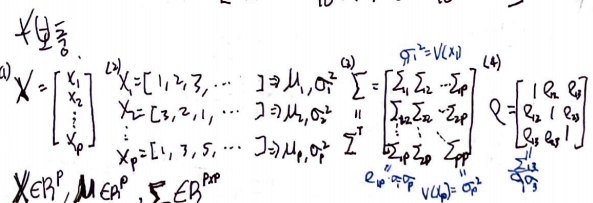 (1) X = [X₁ X₂ ⋮ Xₚ]
(2) X₁ = [1, 2, 3, ⋯ ] ⇒ μ₁, σ₁²
X₂ = [3, 2, 1, ⋯ ] ⇒ μ₂, σ₂²
⋮
Xₚ = [1, 3, 5, ⋯ ] ⇒ μₚ, σₚ²
σ₁² = V(X₁)
(3) Σ = [Σ₁₁ Σ₁₂ ⋯ Σ₁ₚ
Σ₁₂ Σ₂₂ ⋯ Σ₂ₚ
⋮
Σ₁ₚ Σ₂ₚ Σₚₚ]
‖
Σᵀ
ρ₁ₚ·σ₁σₚ
V(Xₚ) = σₚ²
(4) ρ = [1 ρ₁₂ ρ₁₃
ρ₁₂ 1 ρ₂₃
ρ₁₃ ρ₂₃ 1]
‖
Σ₁₃
σ₁σ₃
X∈ℝᵖ, μ∈ℝᵖ, Σ∈ℝᵖˣᵖ